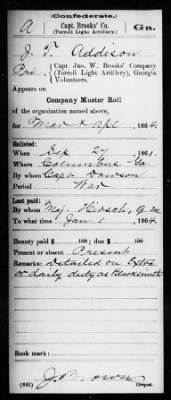 (Confederate.)
A
Capt. Brooks' Co.
(Terrell Light Artillery).
Ga.
J. T. Addison
Pvt, Capt. Jno. W. Brooks' Company
(Terrell Light Artillery), Georgia
Volunteers.
Appears on
Company Muster Roll
of the organization named above,
for Mar & Apl, 1864.
Enlisted:
When Sep 27, 1861.
Where Columbus Ga
By whom Capt. Dawson
Period War
Last paid:
By whom Maj. Hirsch, Q. M.
To what time Jan 1, 1864.
Bounty paid $ 100; due $ 100
Present or absent Present
Remarks: Detailed on Extra
or daily duty as Blacksmith
Book mark:
(642)
J Brown
Copyist.